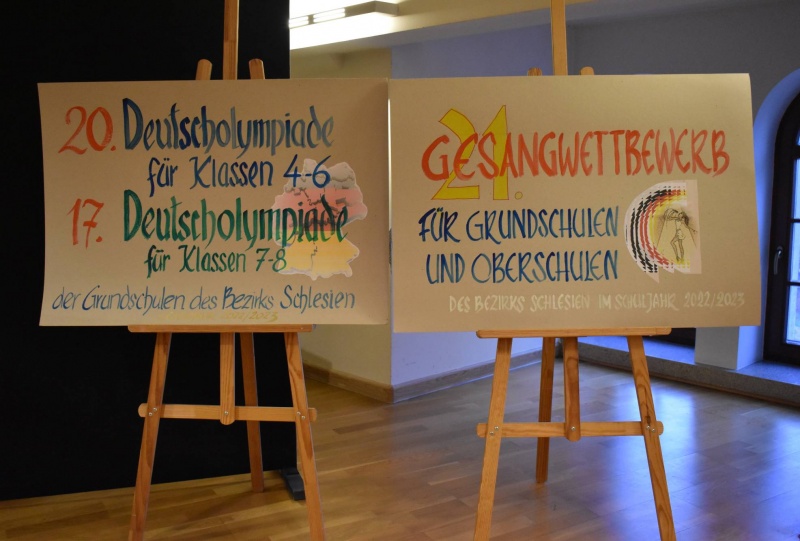 20. Deutscholympiade
für Klassen 4-6
17. Deutscholympiade
für Klassen 7-8
der Grundschulen des Bezirks Schlesien
2022/2023
21.
GESANGWETTBEWERB
FÜR GRUNDSCHULEN
UND OBERSCHULEN
DES BEZIRKS SCHLESIEN IM SCHULJAHR 2022/2023